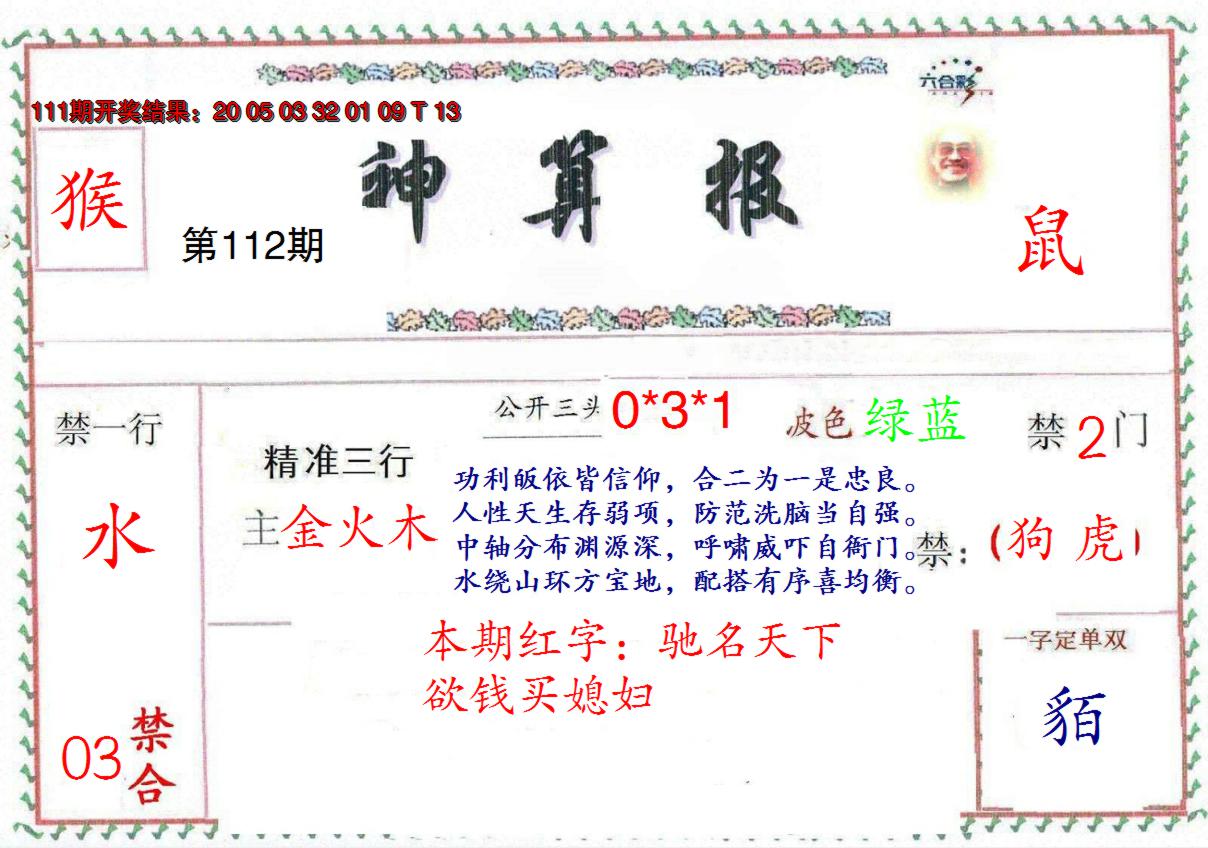 六合彩
111期开奖结果：20 05 03 32 01 09 T 13
神算报
猴
第112期
鼠
公开三头 0*3*1
波色 绿蓝
禁2门
禁一行
水
精准三行
主金火木
功利皈依皆信仰，合二为一是忠良。
人性天生存弱项，防范洗脑当自强。
中轴分布渊源深，呼啸威吓自衙门。
水绕山环方宝地，配搭有序喜均衡。
禁：（狗 虎）
本期红字：驰名天下
欲钱买媳妇
一字定单双
貊
03禁合